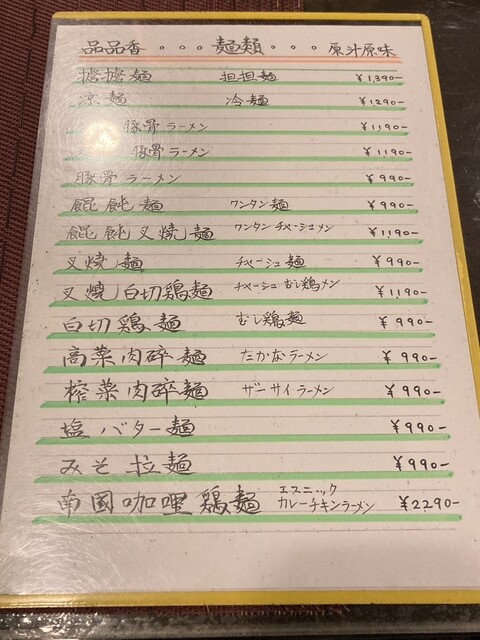 品品香 ・・・ 麺類 ・・・ 原汁原味
擔擔麺 担担麺 ¥1,390-
涼麺 冷麺 ¥1,290-
豚骨ラーメン ¥1,190-
豚骨ラーメン ¥1190-
豚骨ラーメン ¥990-
餛飩麺 ワンタン麺 ¥990-
餛飩叉焼麺 ワンタンチャーシューメン ¥1190-
叉焼麺 チャーシュ麺 ¥990-
叉焼白切鶏麺 チャーシュむし鶏メン ¥1190-
白切鶏麺 むし鶏麺 ¥990-
高菜肉碎麺 たかなラーメン ¥990-
榨菜肉碎麺 ザーサイラーメン ¥990-
塩バター麺 ¥990-
みそ拉麺 ¥990-
南国咖哩鶏麺 エスニックカレーチキンラーメン ¥2290-